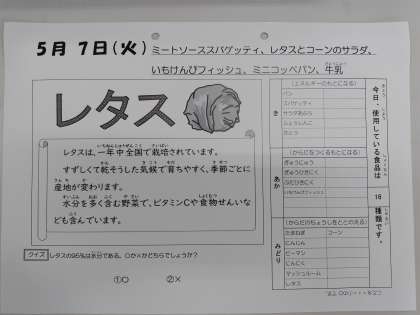 5月7日(火) ミートソーススパゲッティ、レタスとコーンのサラダ、
いもけんぴフィッシュ、ミニコッペパン、牛乳
レタス
レタスは、一年中全国で栽培されています。
すずしくて乾そうした気候で育ちやすく、季節ごとに
産地が変わります。
水分を多く含む野菜で、ビタミンCや食物せんいな
ども含んでいます。
クイズ レタスの95%は水分である。○か×かどちらでしょうか?
①○ ②×
今日、使用している食品は
16
種類です。
き
(エネルギーのもとになる)
パン
スパゲッティ
サラダあぶら
あか
(からだをつくるもとになる)
ぎゅうにゅう
ぎゅうひきにく
ぶたひきにく
みどり
(からだのちょうしをととのえる)
たまねぎ コーン
にんじん
ピーマン
にんにく
マッシュルーム
レタス